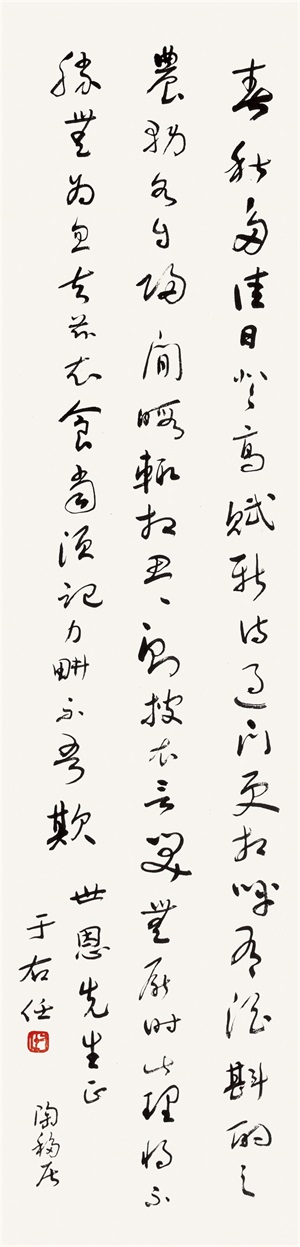 春秋多佳日登高賦新詩過門更相呼有酒斟酌之
農務各自歸閒暇輒相思〻〻則披衣言笑無厭時此理將不
勝無為忽去茲衣食當須記力畊不吾欺
世恩先生正
于右任
陶移居